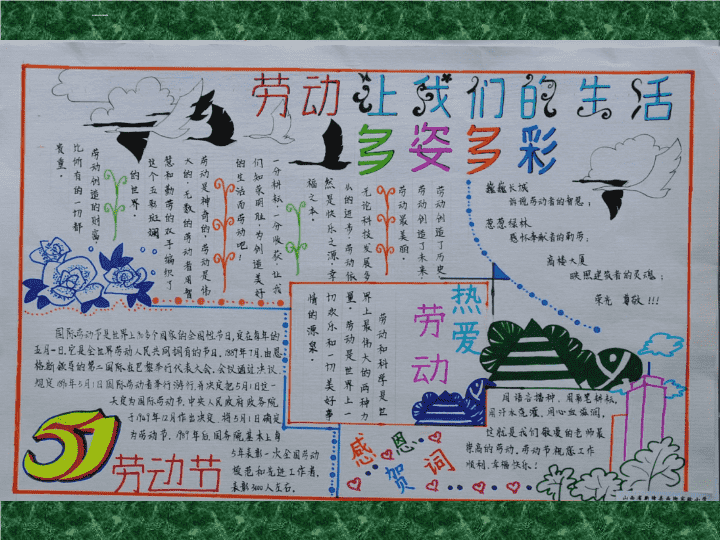 劳动让我们的生活
多姿多彩
劳动创造了历史，
劳动创造了未来，
劳动最美丽。
无论科技发展多
么的进步，劳动依
然是快乐之源，幸
福之本。
一分耕耘，一分收获，让我
们如荣明耻，为创造美好
的生活而劳动吧！
劳动是神奇的，劳动是伟
大的，无数的劳动者用智
慧和勤劳的双手编织了
这个五彩斑斓
的世界。
劳动创造的财富
比所有的一切都
贵重。
巍巍长城
诉说劳动者的智慧；
葱葱绿林
感怀奉献者的勤劳；
高楼大厦
映照建筑者的灵魂；
荣光 尊敬！！！
热爱
劳动
劳动和科学是世
界上最伟大的两种力
量。劳动是世界上一
切欢乐和一切美好事
情的源泉。
国际劳动节是世界上80多个国家的全国性节日，定在每年的
五月一日，它是全世界劳动人民共同拥有的节日。1889年7月，由恩
格斯领导的第二国际在巴黎举行代表大会，会议通过决议，
规定1890年5月1日国际劳动者举行游行，并决定把5月1日这一
天定为国际劳动节。中央人民政府政务院
于1949年12月作出决定，将5月1日确定
为劳动节。1989年后，国务院基本上每
5年表彰一次全国劳动
模范和先进工作者，
表彰3000人左右。
51
劳动节
感恩
贺词
用语言播种，用彩笔耕耘，
用汗水浇灌，用心血滋润，
这就是我们敬爱的老师最
崇高的劳动。劳动节祝您工作
顺利，幸福快乐！